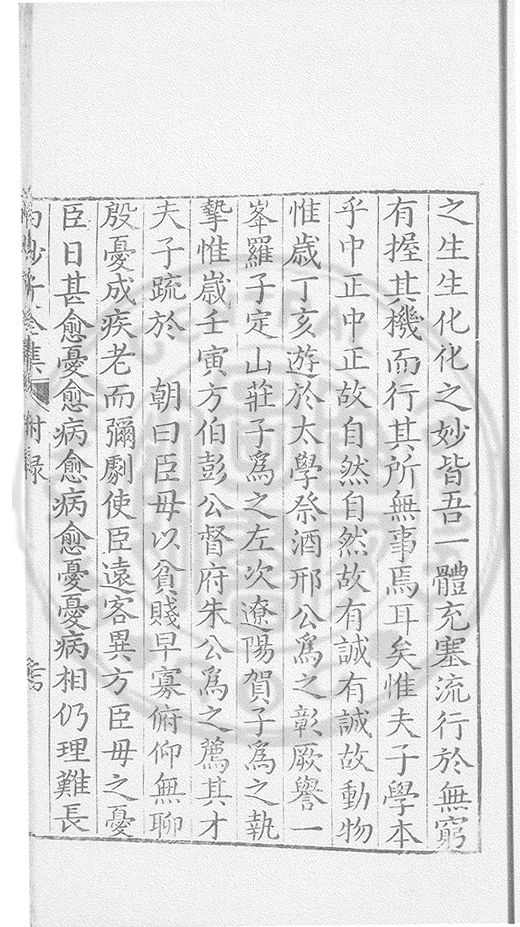 之生生化化之妙皆吾一體充塞流行於無窮
有握其機而行其所無事焉耳矣惟夫子學本
乎中正中正故自然自然故有誠有誠故動物
惟歲丁亥遊於太學祭酒邢公爲之彰厥譽一
峯羅子定山莊子爲之左次遼陽賀子爲之執
摯惟嵗壬寅方伯彭公督府朱公爲之薦其才
夫子疏於 朝曰臣母以貧賤早寡俯仰無聊
殷憂成疾老而彌劇使臣遠客異方臣母之憂
臣日甚愈憂愈病愈病愈憂憂病相仍理難長
附録